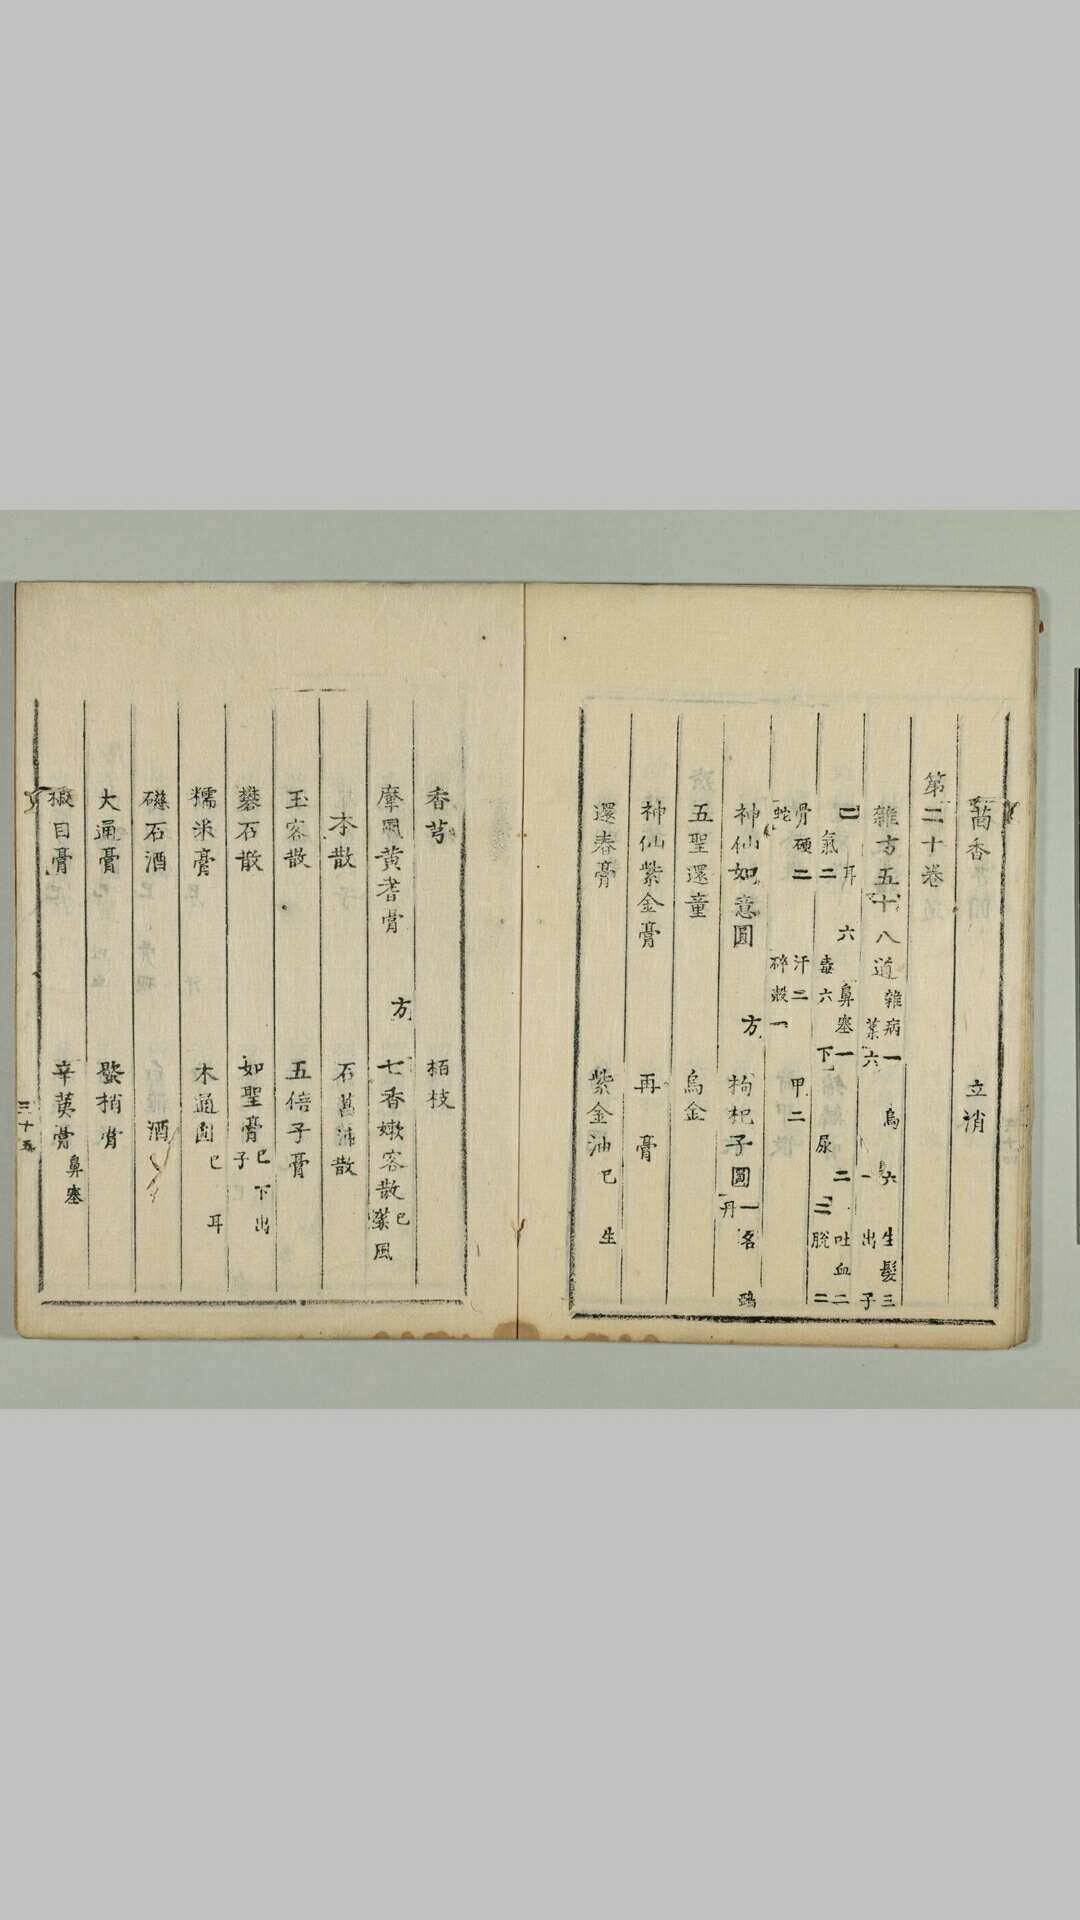 茴香 立消
第二十卷
雜方五十八道 雜病一 烏 六 生髮三
葉六 一 出子
耳 六 鼻塞一 二 吐血二
氣二 毒六 下 尿 三 脫二
骨硬二 汗二 甲二
蛇 碎殺一
神仙如意圓 方 枸杞子圓 一名
丹
五聖還童 烏金
神仙紫金膏 再 膏
還春膏 紫金油 已 生
香芎 栢枝
摩風黃耆膏 方 七香嫰容散 已
風
本散 石菖蒲散
玉容散 五倍子膏
礬石散 如聖膏 已下出
子
糯米膏 木通圓 已 耳
磁石酒 酒
大通膏 膏
椒目膏 辛荑膏 鼻塞
三十五